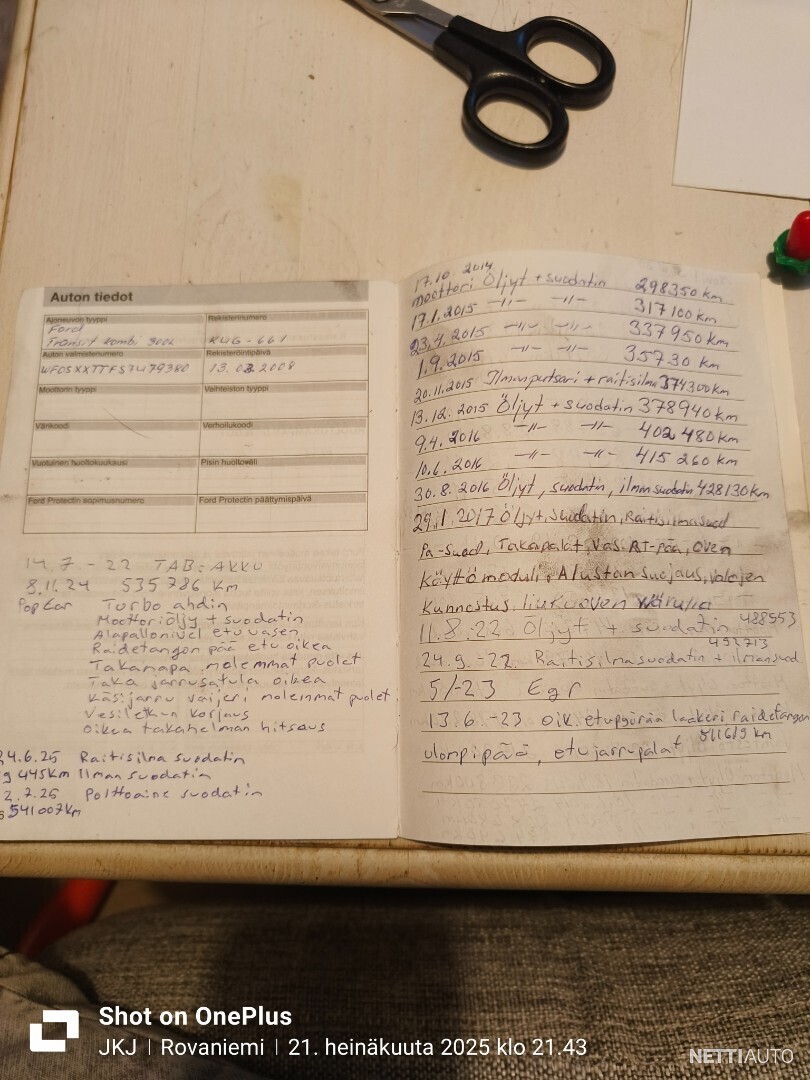 Auton tiedot
Ajoneuvon tyyppi
Ford
Transit kombi 300L
Rekisterinumero
RUG-661
Auton valmistenumero
WF0SXXTTFS7U79380
Rekisteröintipäivä
13.02.2008
Moottorin tyyppi
Vaihteiston tyyppi
Värikoodi
Verhoilukoodi
Vuotuinen huoltokuukausi
Pisin huoltoväli
Ford Protectin sopimusnumero
Ford Protectin päättymispäivä
14.7 - 22 TAB: AKKU
8.11.24 535786 km
PopCar Turbo ahdin
Moottoriöljy + suodatin
Alapallonivel etu vasen
Raidetangon pää etu oikea
Takanapa molemmat puolet
Taka jarrusatula oikea
Käsijarru vaijeri molemmat puolet
Vesiletkun korjaus
Oikea takahelman hitsaus
24.6.25 Raitisilma suodatin
9 445km Ilman suodatin
2.7.25 Polttoaine suodatin
541007km
17.10 2014
moottori Öljyt + suodatin 298350 km
17.1.2015 -||- -||- 317100 km
23.4.2015 -||- -||- 337950 km
1.9.2015 -||- -||- 35730 km
20.11.2015 Ilmanputsari + raitisilma 374300 km
13.12.2015 Öljyt + suodatin 378940 km
9.4.2016 -||- -||- 402 480 km
10.6.2016 -||- -||- 415 260 km
30.8.2016 Öljyt, suodatin, ilman suodatin 428130 km
29.1.2017 Öljyt, suodatin, Raitisilmasuod
Pa-suod, Takapalat, Vas. RT-pää, Oven
Käyttömoduli, Alustan suojaus, valojen
Kunnostus, liukuoven
11.8.22 Öljyt + suodatin 488553
24.9.-22 Raitisilmasuodatin + ilmansuod 492713
5/-23 Egr
13.6.-23 oik. etupyörän laakeri raidetangon
ulompi pää, etujarrupalat 511619 km
Shot on OnePlus
JKJ | Rovaniemi | 21. heinäkuuta 2025 klo 21.43
NETTIAUTO